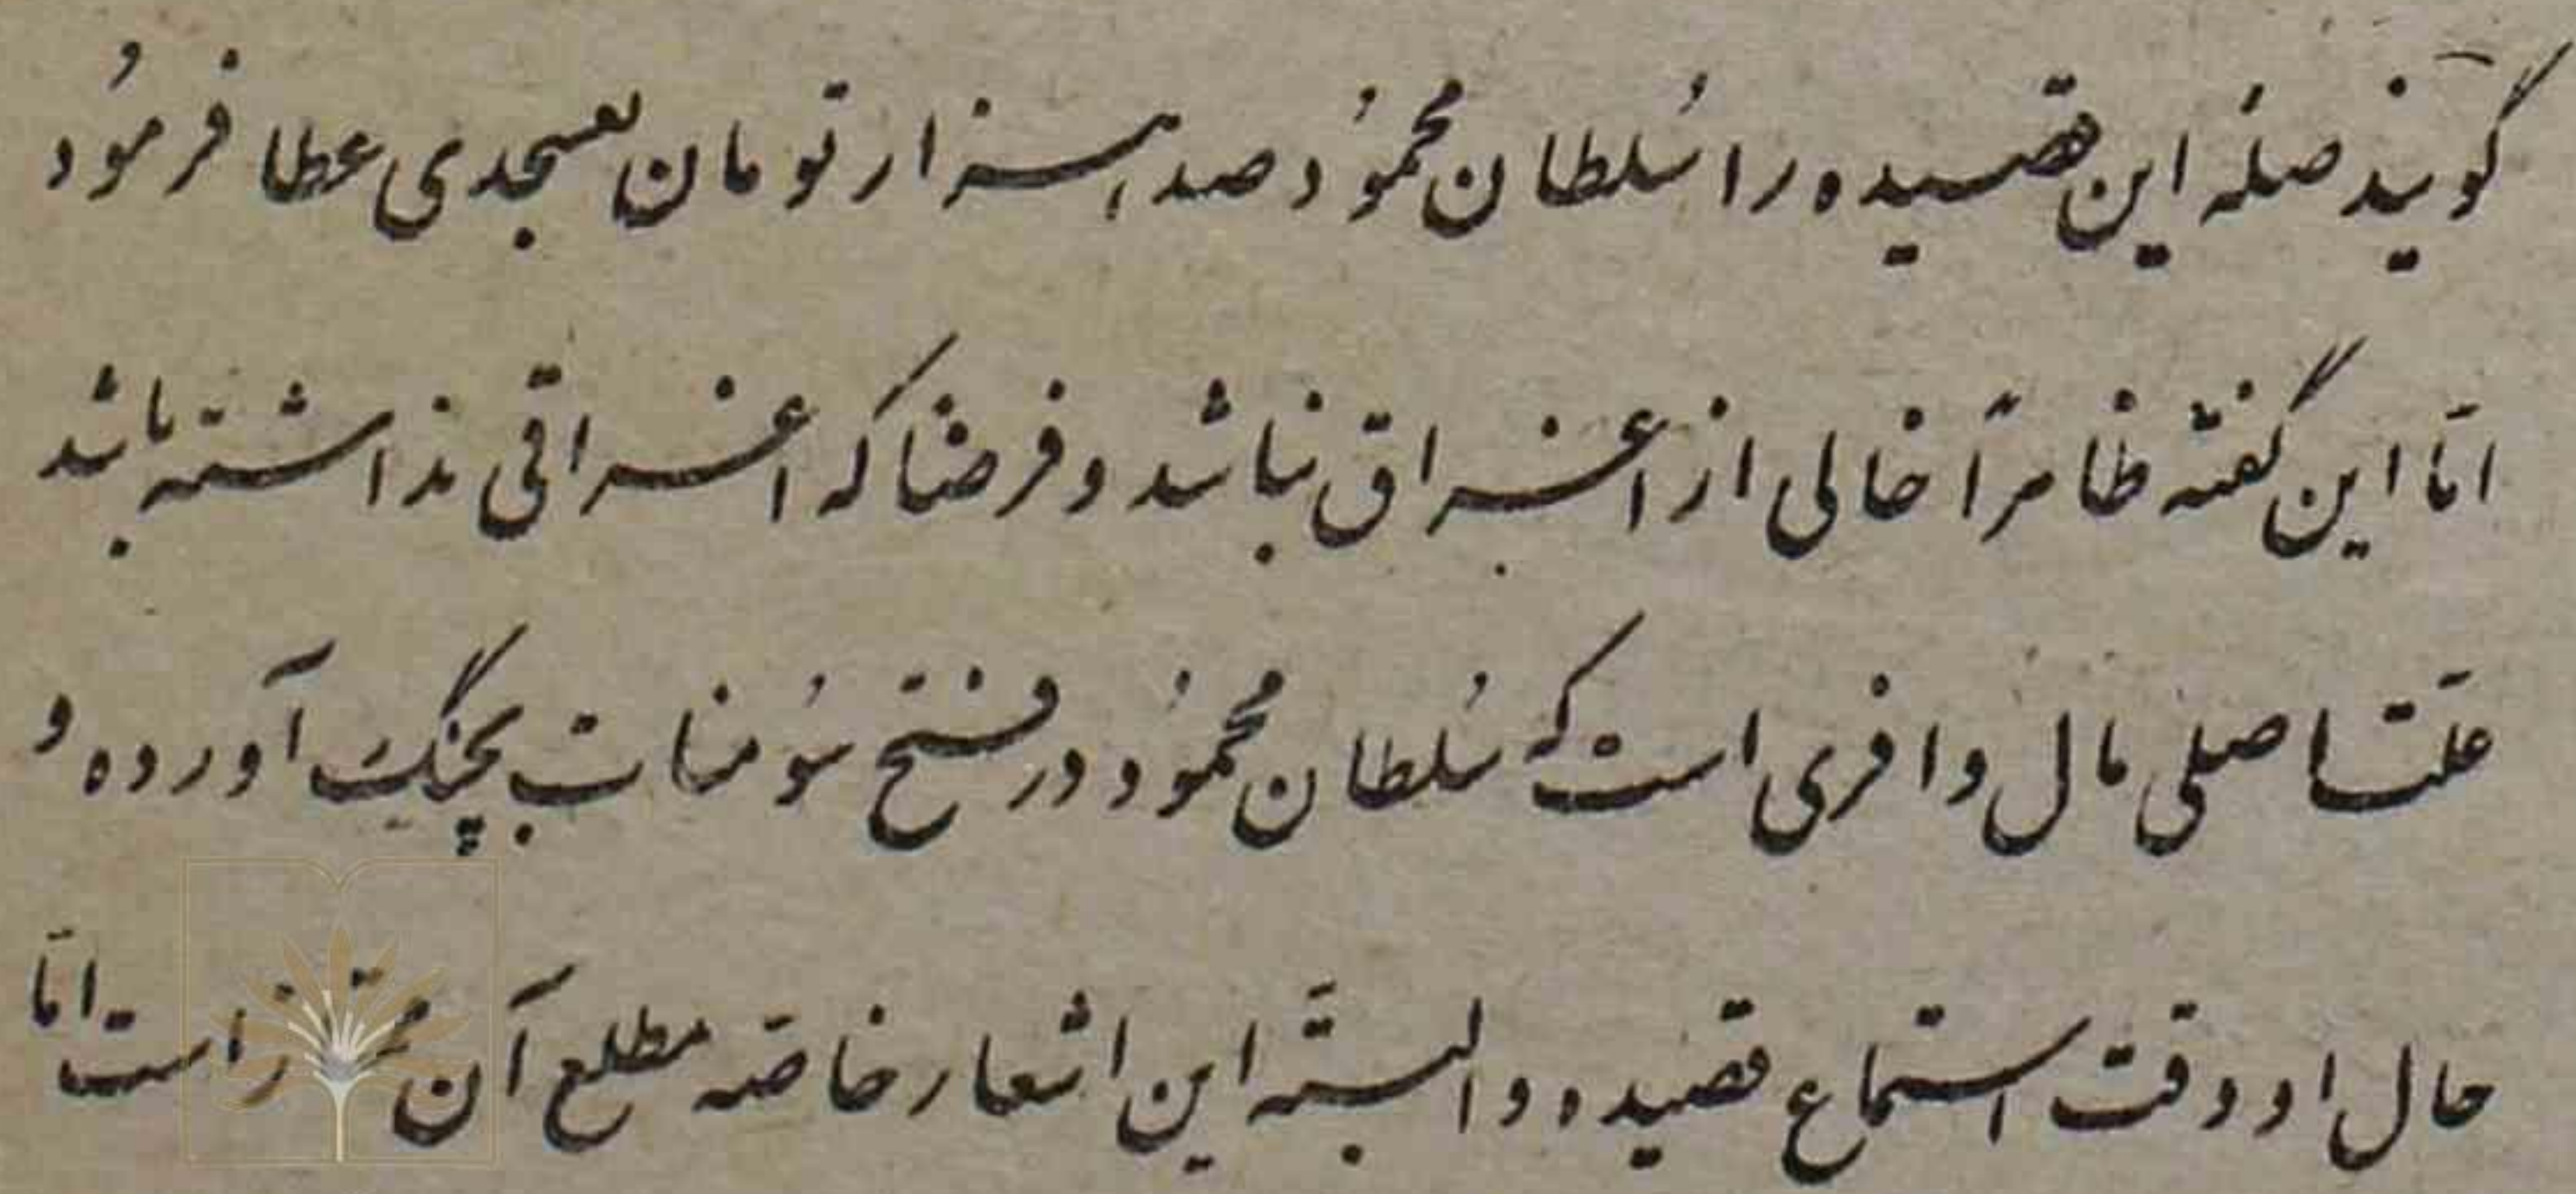 گویند صلهٔ این قصیده را سُلطان محمُود صد هزار تومان بعسجدی عطا فرمُود
امّا این گفته ظاهراً خالی از اغراق نباشد و فرضا که اغراقی نداشته باشد
علّت اصلی مال وافری است که سُلطان محمُود در فتح سُومنات بچنگ آورده و
حال او وقت استماع قصیده و البتّه این اشعار خاصّه مطلع آن است امّا